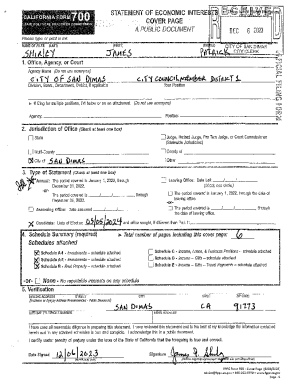 CALIFORNIA FORM 700
FAIR POLITICAL PRACTICES COMMISSION
STATEMENT OF ECONOMIC INTERESTS
COVER PAGE
A PUBLIC DOCUMENT
RECEIVED
DEC 6 2023
CITY OF SAN DIMAS
CITY CLERK
Please type or print in ink.
NAME OF FILER (LAST) (FIRST) (MIDDLE)
SHIRLEY JAMES PATRICK
1. Office, Agency, or Court
Agency Name (Do not use acronyms)
CITY OF SAN DIMAS CITY COUNCIL MEMBER DISTRICT 1
Division, Board, Department, District, if applicable Your Position
► If filing for multiple positions, list below or on an attachment. (Do not use acronyms)
Agency: Position:
2. Jurisdiction of Office (Check at least one box)
State
Judge, Retired Judge, Pro Tem Judge, or Court Commissioner
(Statewide Jurisdiction)
Multi-County County of
City of SAN DIMAS Other
3. Type of Statement (Check at least one box)
Annual: The period covered is January 1, 2022, through
December 31, 2022.
-or-
The period covered is through
December 31, 2022.
Leaving Office: Date Left
(Check one circle.)
The period covered is January 1, 2022, through the date of
leaving office.
-or-
The period covered is through
the date of leaving office.
Assuming Office: Date assumed
Candidate: Date of Election 03/05/2024 and office sought, if different than Part 1:
4. Schedule Summary (required) ► Total number of pages including this cover page: 6
Schedules attached
Schedule A-1 - Investments – schedule attached
Schedule A-2 - Investments – schedule attached
Schedule B - Real Property – schedule attached
Schedule C - Income, Loans, & Business Positions – schedule attached
Schedule D - Income – Gifts – schedule attached
Schedule E - Income – Gifts – Travel Payments – schedule attached
-or- None - No reportable interests on any schedule
5. Verification
MAILING ADDRESS STREET CITY STATE ZIP CODE
SAN DIMAS CA 91773
I have used all reasonable diligence in preparing this statement. I have reviewed this statement and to the best of my knowledge the information contained
herein and in any attached schedules is true and complete. I acknowledge this is a public document.
I certify under penalty of perjury under the laws of the State of California that the foregoing is true and correct.
Date Signed 12/06/2023 Signature